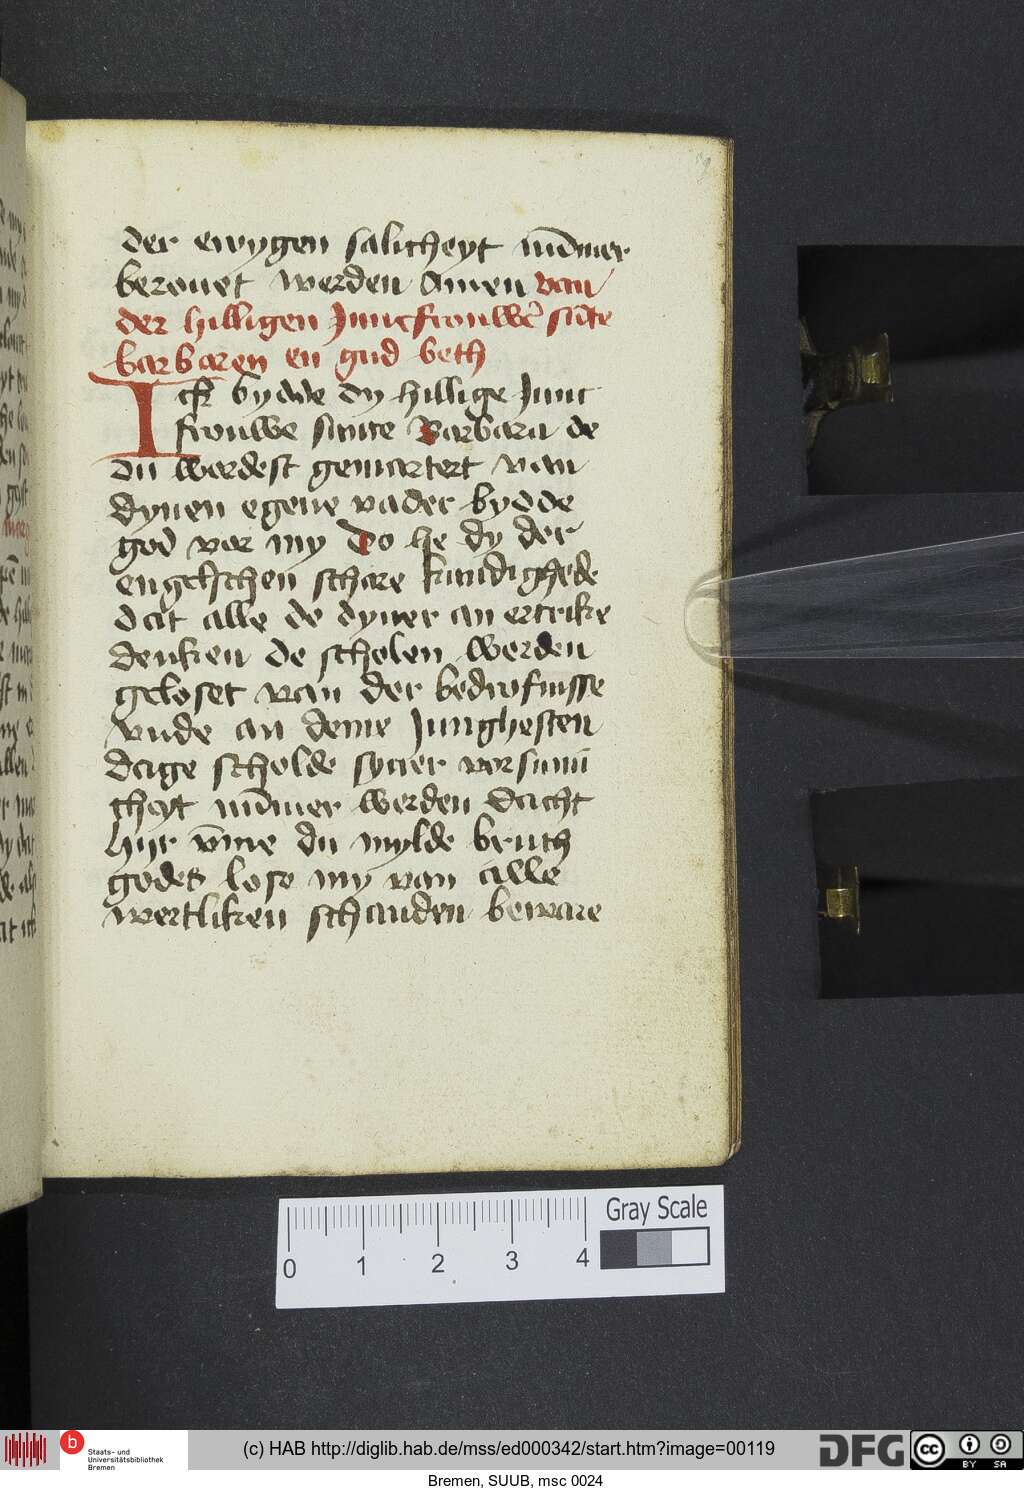 der ewygen salicheyt nūmer
berouet werden Amen van
der hilligen Juncfrouwē sūte
barbaren en gud beth
Ick bydde dy hillige Junc
frouwe sunte Barbara de
du werdest gemartert van
dynen egene vader bydde
god vor my Do he dy der
engelschen schare kundighede
dat alle de dyner an ertrike
denken de scholen werden
geloset van der bedrofnisse
vnde an deme Junghesten
dage scholde syner vorsumi
cheyt nūmer werden dacht
hijr vm̄e du mylde bruth
godes lose my van alle
wertliken schanden beware
0 1 2 3 4
Gray Scale
b
Staats- und
Universitätsbibliothek
Bremen
(c) HAB http://diglib.hab.de/mss/ed000342/start.htm?image=00119
DFG
cc
BY SA
Bremen, SUUB, msc 0024